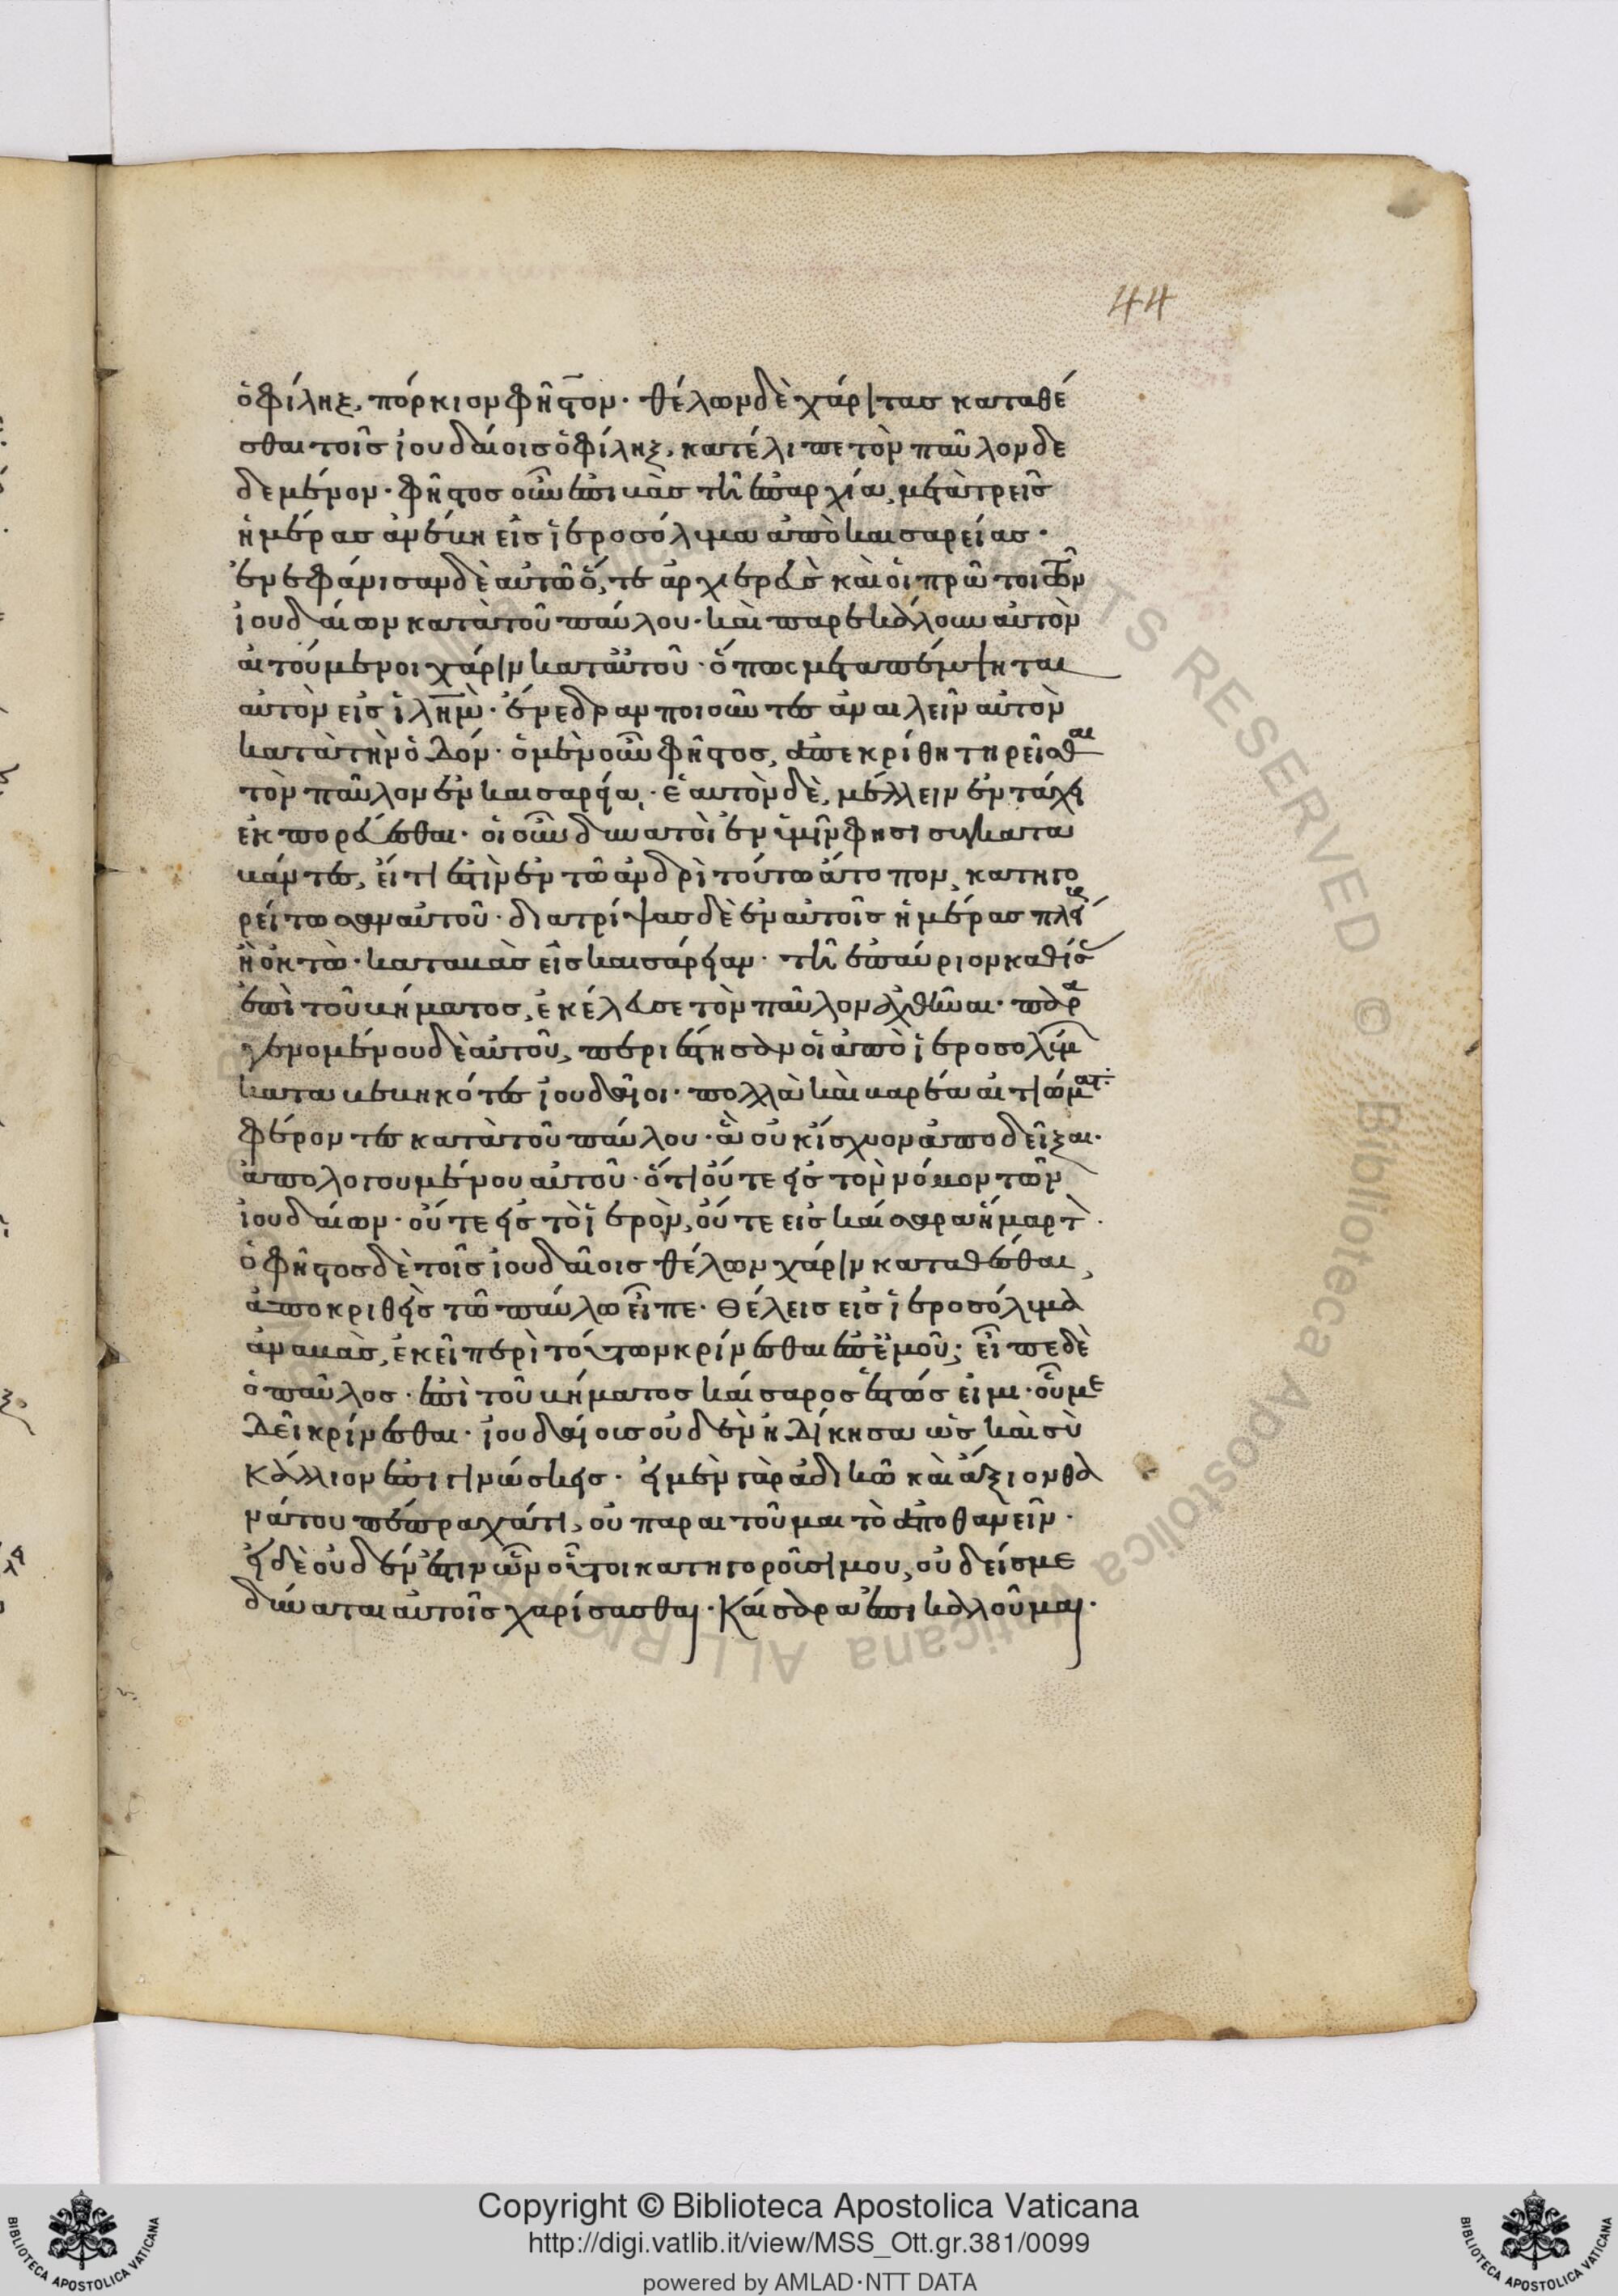 44
ὁ φίληξ, πόρκιον φῆστον· θέλων δὲ χάριτας καταθέ
σθαι τοῖς ἰουδαίοις ὁ φίληξ, κατέλιπε τὸν παῦλον δε
δεμένον· φῆστος οὖν ἐπιβὰς τῆ ἐπαρχία, μετὰ τρεῖς
ἡμέρας ἀνέβη εἰς ἱεροσόλυμα ἀπὸ καισαρείας·
ἐνεφάνισαν δὲ αὐτῶ ὅ, τε ἀρχιερεὺς καὶ οἱ πρῶτοι τῶν
ἰουδαίων κατὰ τοῦ παύλου· καὶ παρεκάλουν αὐτὸν
αἰτούμενοι χάριν κατ αὐτοῦ· ὅπως μεταπέμψηται
αὐτὸν εἰς ἱλημ· ἐνέδραν ποιοῦντες ἀναιλεῖν αὐτὸν
κατὰ τὴν ὁδόν· ὁ μὲν οὖν φῆστος, ἀπεκρίθη τηρεῖσθαι
τὸν παῦλον ἐν καισαρεία· ἑαυτὸν δὲ, μέλλειν ἐν τάχει
ἐκπορεύεσθαι· οἱ οὖν δυνατοὶ ἐν ὑμῖν φησὶ συγκατα
βάντες, εἴ τι ἐστὶν ἐν τῶ ἀνδρὶ τούτω ἄτοπον, κατηγο
ρείτωσαν αὐτοῦ· διατρίψας δὲ ἐν αὐτοῖς ἡμέρας πλεί
ἢ ὀκτὼ· καταβὰς εἰς καισάρειαν· τῆ ἐπαύριον καθίσ
ἐπὶ τοῦ βήματος, ἐκέλευσε τὸν παῦλον ἀχθῆναι· παρα
γενομένου δὲ αὐτοῦ, περιέστησαν οἱ ἀπὸ ἱεροσολύμ
καταβεβηκότες ἰουδαῖοι· πολλὰ καὶ βαρέα αἰτιώματ
φέροντες κατὰ τοῦ παύλου· ἃ οὐκ ἴσχυον ἀποδεῖξαι·
ἀπολογουμένου αὐτοῦ· ὅτι οὔτε εἰς τὸν νόμον τῶν
ἰουδαίων· οὔτε εἰς τὸ ἱερὸν, οὔτε εἰς καίσαρα ἥμαρτ·
ὁ φῆστος δὲ τοῖς ἰουδαίοις θέλων χάριν καταθέσθαι,
ἀποκριθεὶς τῶ παύλω εἶπε· θέλεις εἰς ἱεροσόλυμα
ἀναβὰς, ἐκεῖ περὶ τούτων κρίνεσθαι ἐπ ἐμοῦ; εἶπε δὲ
ὁ παῦλος· ἐπὶ τοῦ βήματος καίσαρος ἑστώς εἰμι· οὗ με
δεῖ κρίνεσθαι· ἰουδαίους οὐδὲν ἠδίκησα ὡς καὶ σὺ
κάλλιον ἐπιγινώσκεις· εἰ μὲν γὰρ ἀδικῶ καὶ ἄξιον θα
νάτου πέπραχά τι, οὐ παραιτοῦμαι τὸ ἀποθανεῖν·
εἰ δὲ οὐδέν ἐστιν ὧν οὗτοι κατηγοροῦσι μου, οὐδείς με
δύναται αὐτοῖς χαρίσασθαι· Καίσαρα ἐπικαλοῦμαι·
Copyright © Biblioteca Apostolica Vaticana
http://digi.vatlib.it/view/MSS_Ott.gr.381/0099
powered by AMLAD·NTT DATA
BIBLIOTECA APOSTOLICA VATICANA
BIBLIOTECA APOSTOLICA VATICANA